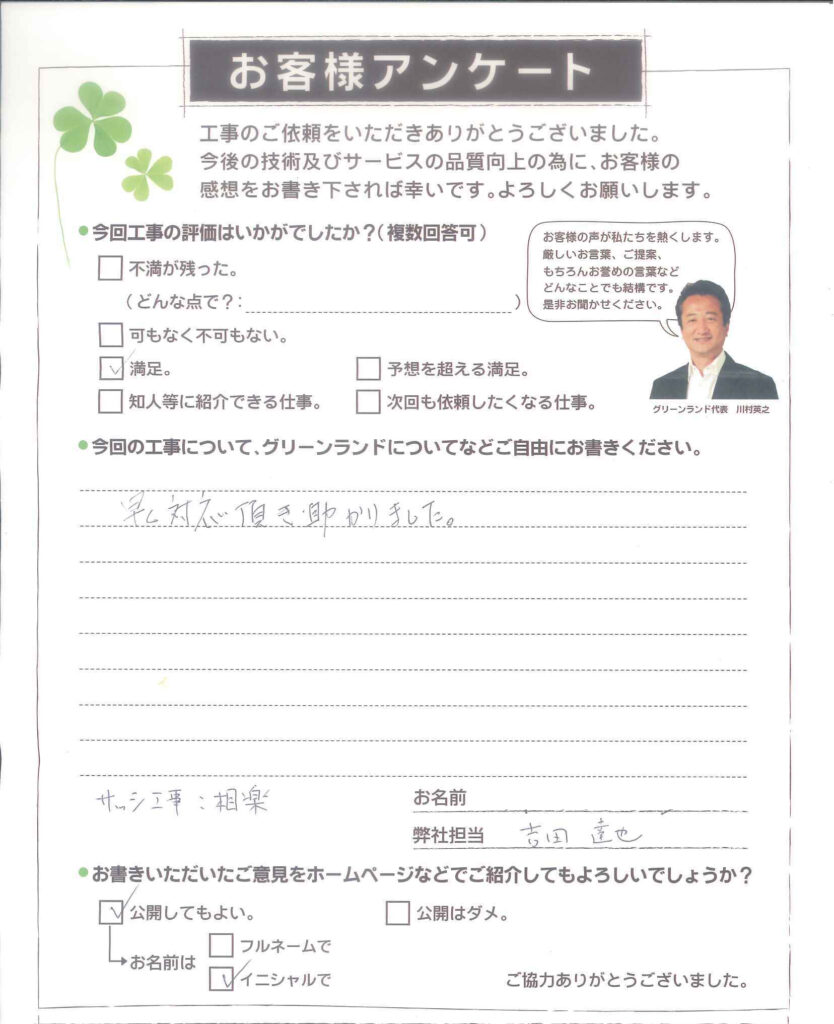 お客様アンケート
工事のご依頼をいただきありがとうございました。
今後の技術及びサービスの品質向上の為に、お客様の
感想をお書き下されば幸いです。よろしくお願いします。
今回工事の評価はいかがでしたか?(複数回答可)
お客様の声が私たちを熱くします。
厳しいお言葉、ご提案、
もちろんお誉めの言葉など
どんなことでも結構です。
是非お聞かせください。
不満が残った。
(どんな点で?: )
可もなく不可もない。
満足。 予想を超える満足。
知人等に紹介できる仕事。 次回も依頼したくなる仕事。
グリーンランド代表 川村英之
今回の工事について、グリーンランドについてなどご自由にお書きください。
早く対応頂き助かりました。
サッシ工事:相楽
お名前
弊社担当 吉田達也
お書きいただいたご意見をホームページなどでご紹介してもよろしいでしょうか?
公開してもよい。 公開はダメ。
お名前は
フルネームで
イニシャルで
ご協力ありがとうございました。